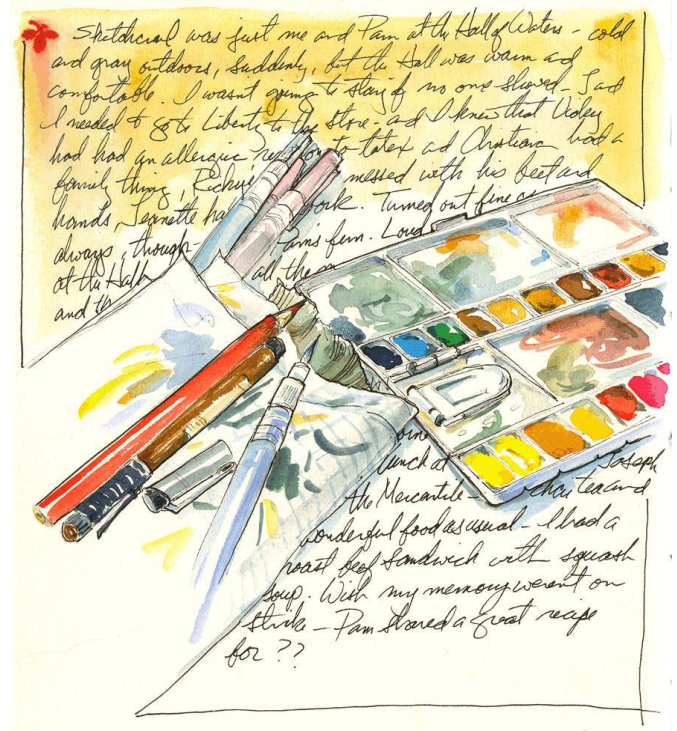 Sketchcrawl was just me and Pam at the Hall of Waters - cold
and gray outdoors, suddenly, but the Hall was warm and
comfortable. I wasn't going to stay if no one showed - and
I needed to go to Liberty to the store - and I knew that Vicky
had had an allergic to latex and Christian had a
family thing, Ricky messed with his feet and
hands, Jeanette ha work. Turned out fine as
always, though - Pam's fun. Loud
at the Hall all the
and th
lunch at Joseph
the Mercantile - chai tea and
wonderful food as usual - I had a
roast beef sandwich with squash
soup. Wish my memory weren't on
strike - Pam shared a great recipe
for ??